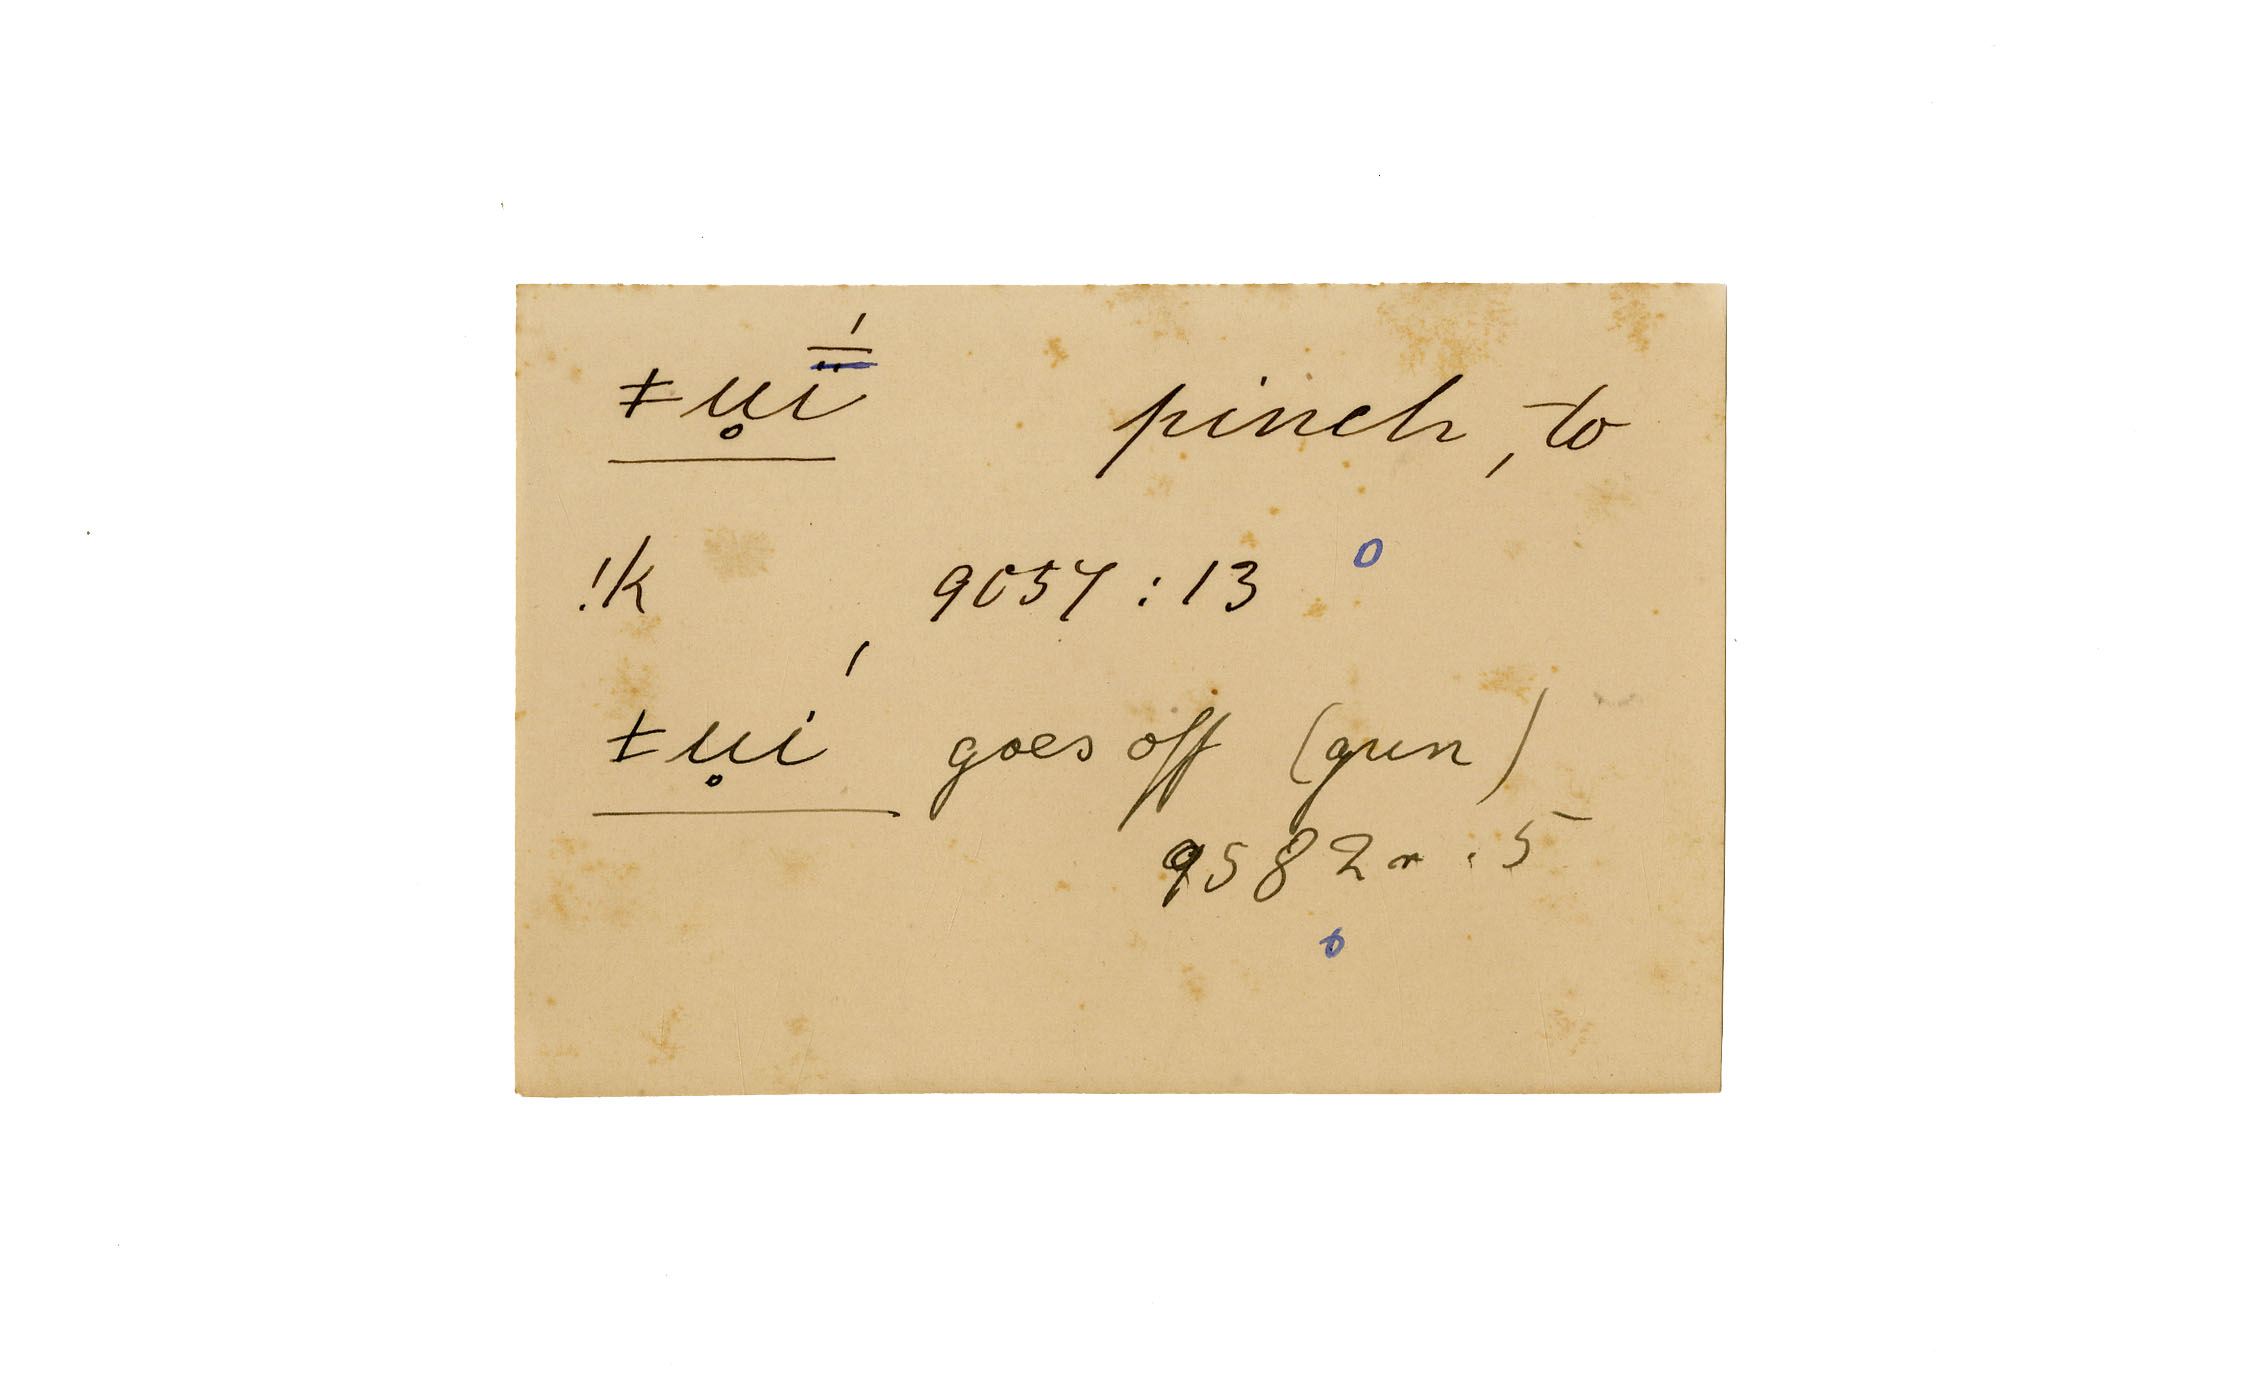 ǂu̥ḯ̱ pinch, to
!k 9057 : 13 o
ǂu̥i´ goes off (gun)
9582 r . 5
o